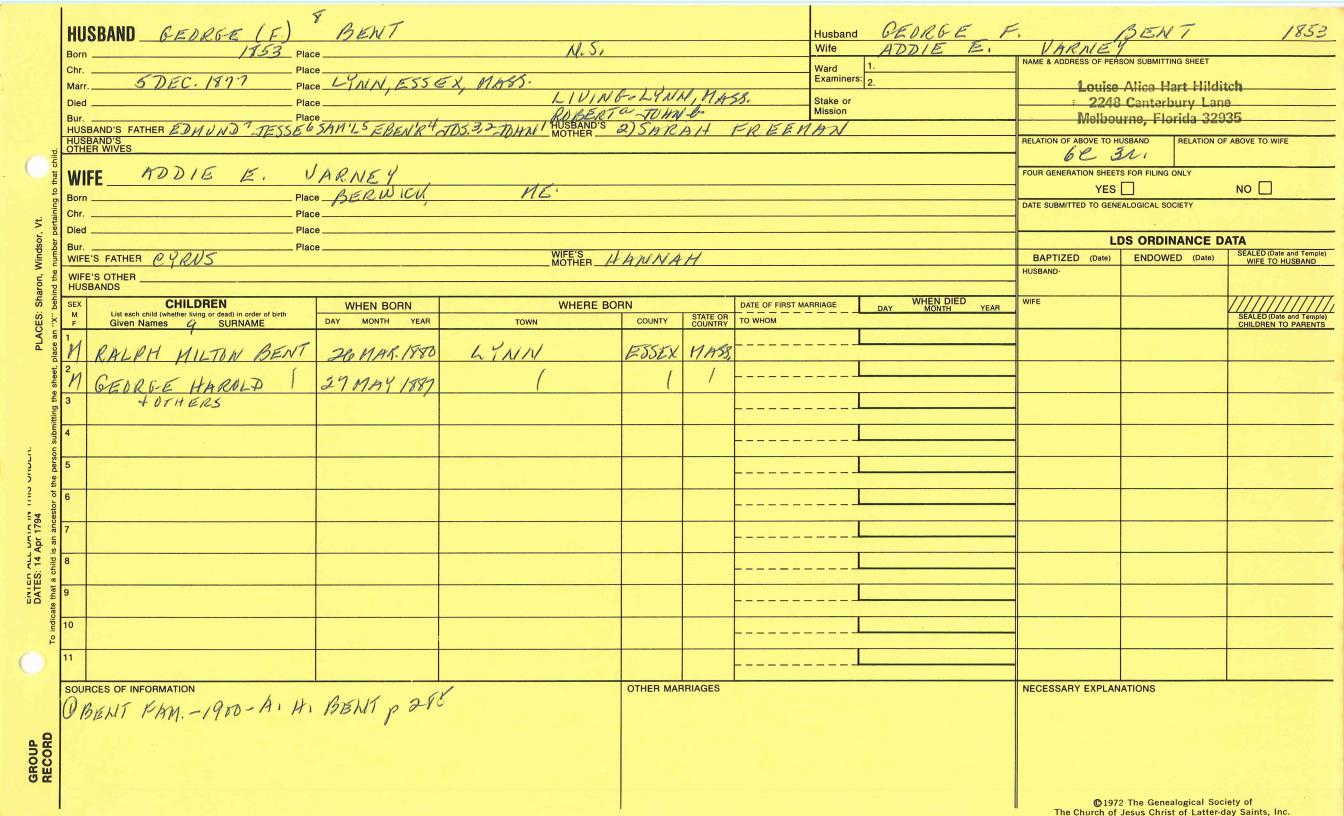 8
HUSBAND GEORGE (F.) BENT
Born 1853 Place N.S.
Chr. Place
Marr. 5 DEC. 1877 Place LYNN, ESSEX, MASS.
Died Place LIVING-LYNN, MASS.
Bur. Place ROBERT a JOHN b
HUSBAND'S FATHER EDMUND 7 JESSE 6 SAM'L 5 EBEN'R 4 JOS. 3,2 JOHN 1 HUSBAND'S MOTHER 2) SARAH FREEMAN
HUSBAND'S OTHER WIVES
WIFE ADDIE E. VARNEY
Born Place BERWICK, ME.
Chr. Place
Died Place
Bur. Place
WIFE'S FATHER CYRUS WIFE'S MOTHER HANNAH
WIFE'S OTHER HUSBANDS
Husband GEORGE F. BENT 1853
Wife ADDIE E. VARNEY
Ward Examiners: 1.
2.
Stake or Mission
NAME & ADDRESS OF PERSON SUBMITTING SHEET
Louise Alice Hart Hilditch
2248 Canterbury Lane
Melbourne, Florida 32935
RELATION OF ABOVE TO HUSBAND RELATION OF ABOVE TO WIFE
6C 3r.
FOUR GENERATION SHEETS FOR FILING ONLY
YES NO
DATE SUBMITTED TO GENEALOGICAL SOCIETY
LDS ORDINANCE DATA
BAPTIZED (Date) ENDOWED (Date) SEALED (Date and Temple) WIFE TO HUSBAND
HUSBAND
WIFE
SEALED (Date and Temple) CHILDREN TO PARENTS
SEX M F
CHILDREN
List each child (whether living or dead) in order of birth
Given Names 9 SURNAME
WHEN BORN
DAY MONTH YEAR
WHERE BORN
TOWN COUNTY STATE OR COUNTRY
DATE OF FIRST MARRIAGE
TO WHOM
WHEN DIED
DAY MONTH YEAR
1 M RALPH MILTON BENT 26 MAR. 1880 LYNN ESSEX MASS.
2 M GEORGE HAROLD 27 MAY 1887
3 + OTHERS
4
5
6
7
8
9
10
11
SOURCES OF INFORMATION
① BENT FAM. - 1900 - A. H. BENT p
OTHER MARRIAGES
NECESSARY EXPLANATIONS
©1972 The Genealogical Society of
The Church of Jesus Christ of Latter-day Saints, Inc.
PLACES: Sharon, Windsor, Vt.
To indicate that a child is an ancestor of the person submitting the sheet, place an "X" behind the number pertaining to that child.
ENTER ALL DATA IN THIS ORDER:
DATES: 14 Apr 1794
GROUP RECORD